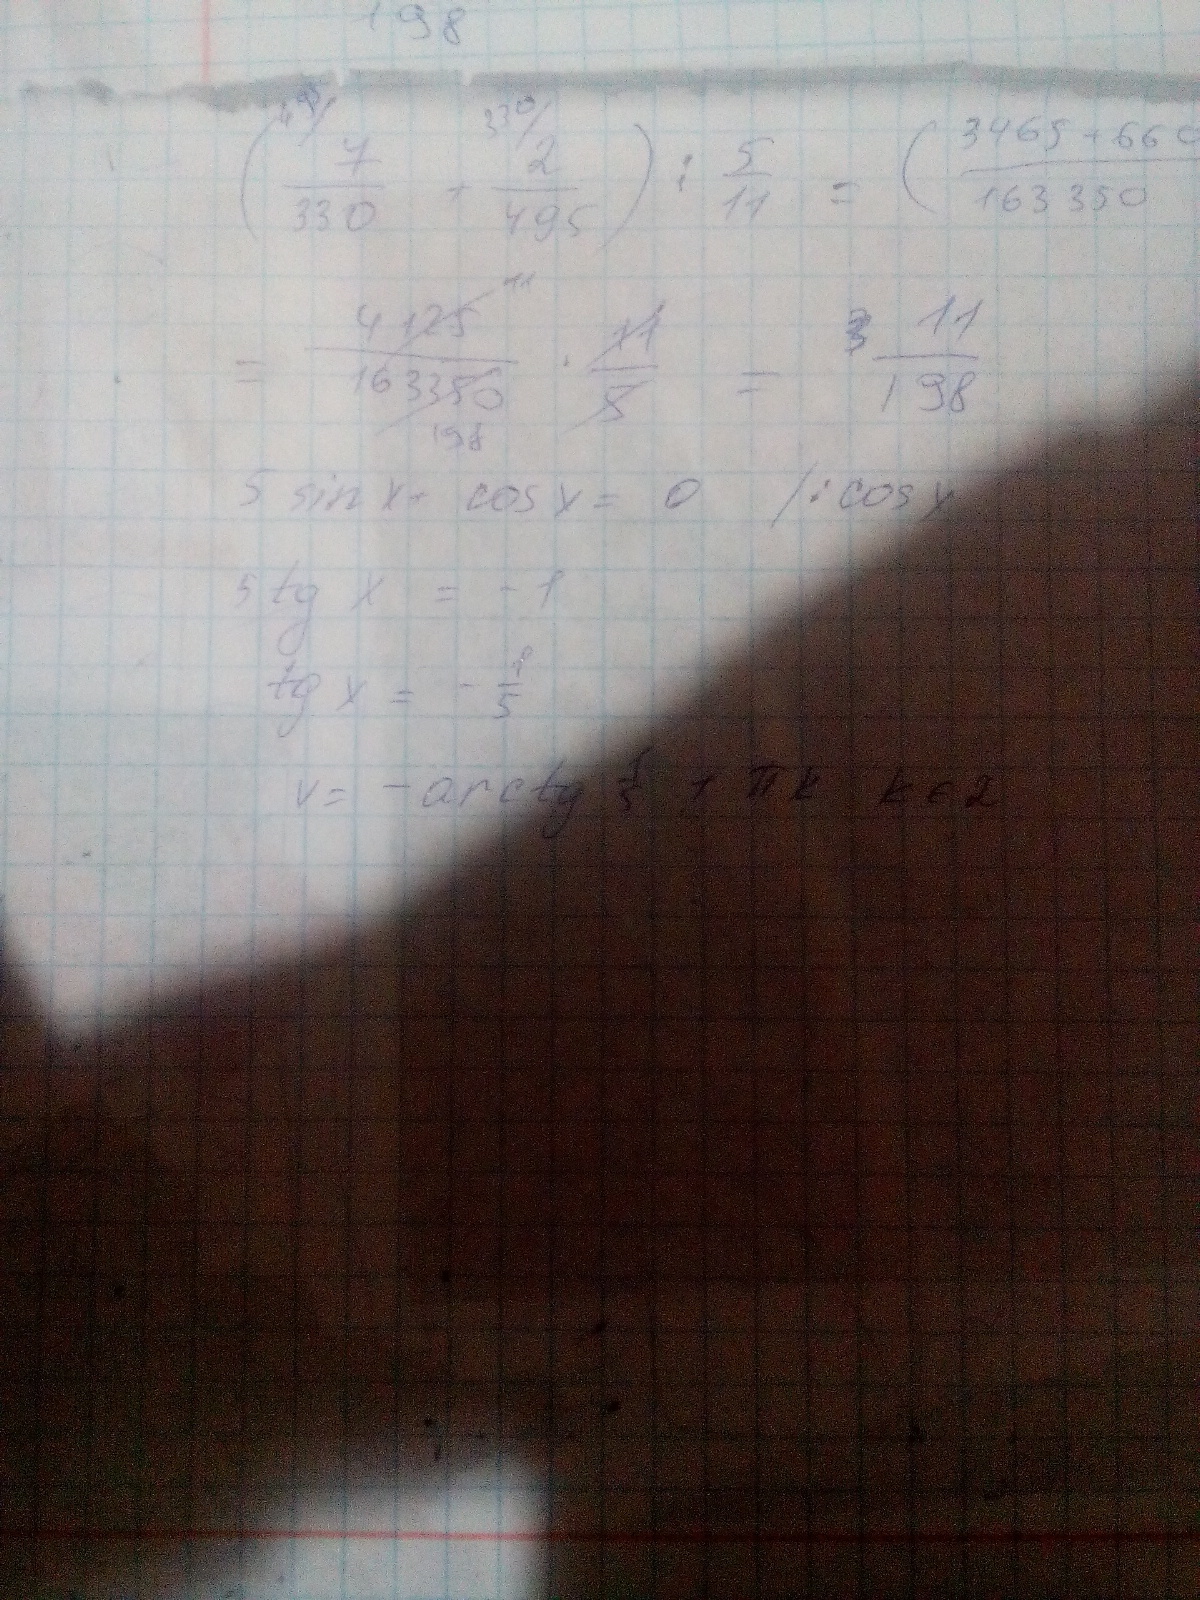 198
(⁴⁹⁵/ 7/330 + ³³⁰/ 2/495) : 5/11 = (3465+660/163350
= 4125/163350 · 11/5 = 11/198
11
198
5 sin x + cos x = 0 /: cos x
5 tg x = -1
tg x = - 1/5
x = - arctg 1/5 + πk k ∈ Z